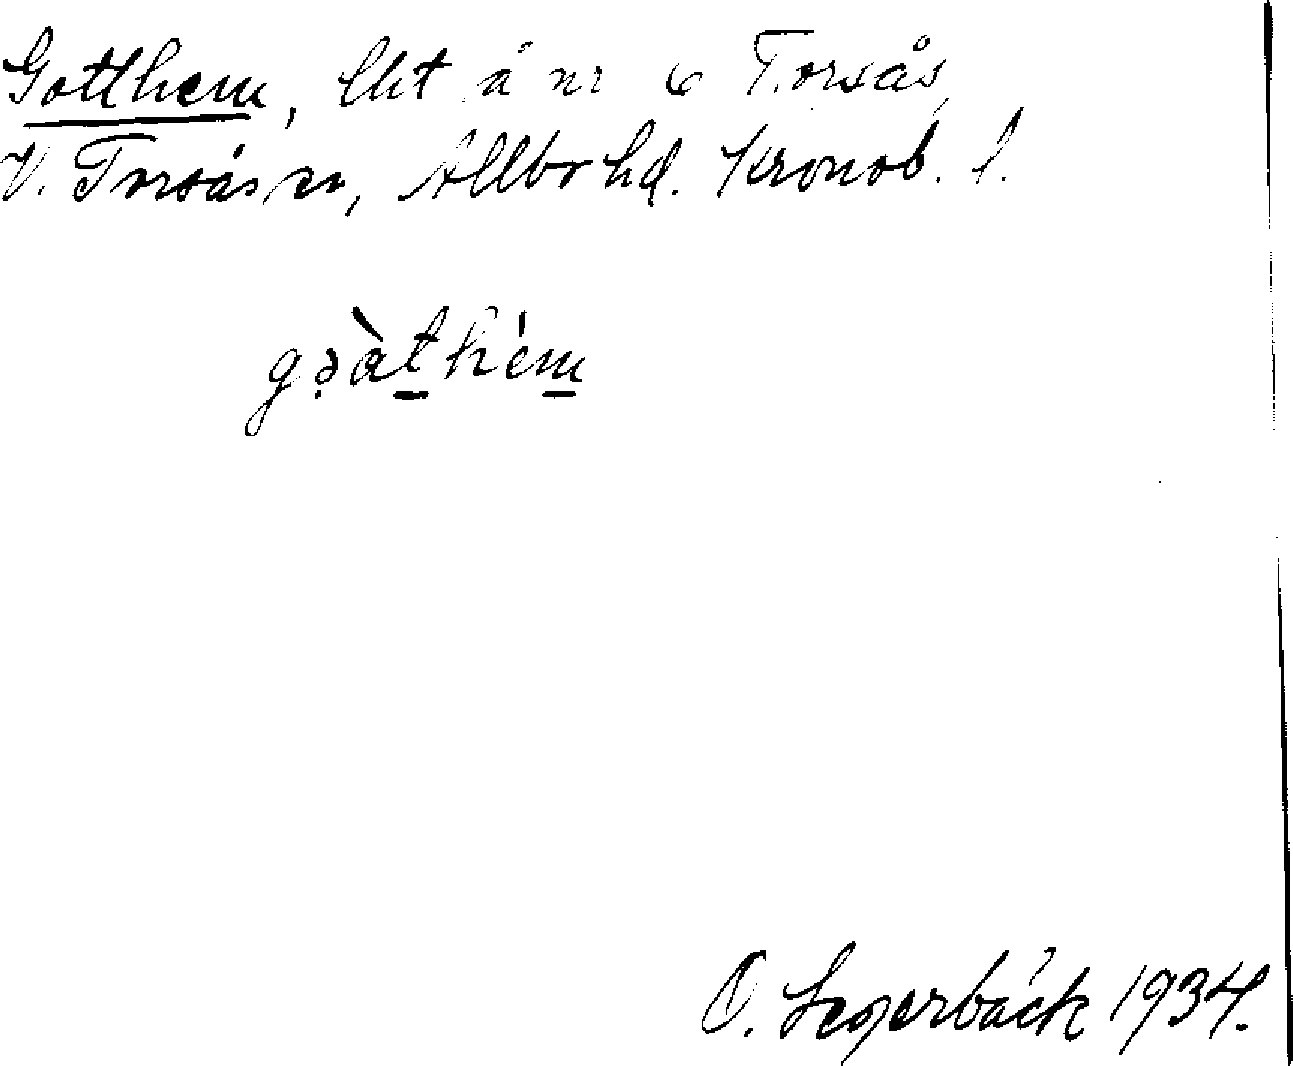 Gotthem, lht å nr 6 Torsås,
V. Torsås sn, Allbo hd. Kronob. l.
O. Segerbäck 1934.